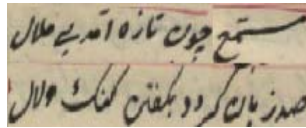 مستمع چون تازه آمد بی ملال
صد زبان گردد بگفتن گنگ و لال